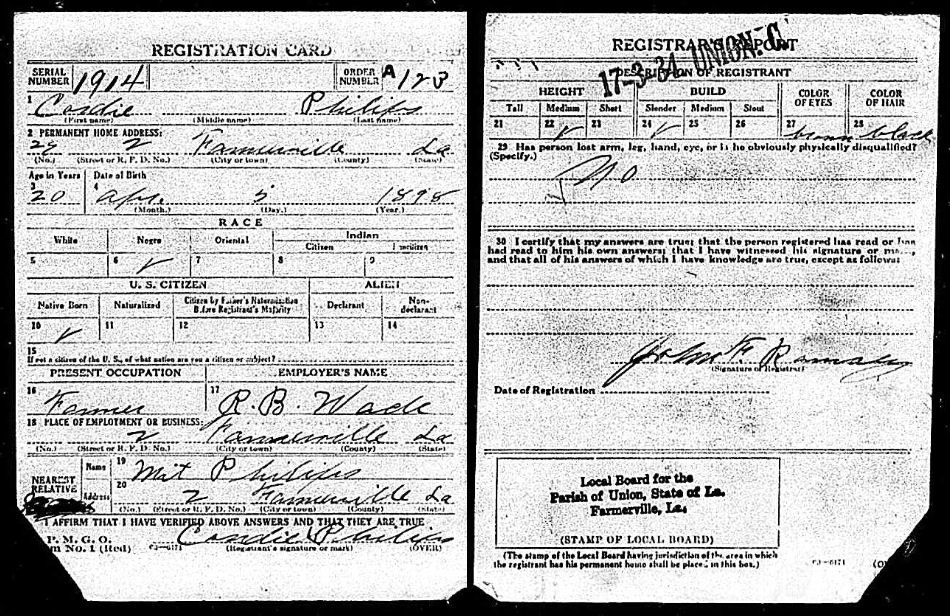 REGISTRATION CARD
SERIAL NUMBER 1914
ORDER NUMBER A123
1 Cordie Philips
(First name) (Middle name) (Last name)
2 PERMANENT HOME ADDRESS:
2 Farmerville La
(No.) (Street or R. F. D. No.) (City or town) (County) (State)
Age in Years Date of Birth
3 20 4 Apr. 5 1898
(Month.) (Day.) (Year.)
RACE
White Negro Oriental Indian
Citizen
5 6 ✓ 7 8 9
U. S. CITIZEN ALIEN
Native Born Naturalized Citizen by Father's Naturalization Before Registrant's Majority Declarant Non-declarant
10 ✓ 11 12 13 14
15
If not a citizen of the U. S., of what nation are you a citizen or subject?
PRESENT OCCUPATION EMPLOYER'S NAME
16 Farmer 17 R. B. Wade
18 PLACE OF EMPLOYMENT OR BUSINESS:
2 Farmerville La
(No.) (Street or R. F. D. No.) (City or town) (County) (State)
NEAREST RELATIVE
Name 19 Mit Philips
Address 20 2 Farmerville La
(No.) (Street or R. F. D. No.) (City or town) (County) (State)
I AFFIRM THAT I HAVE VERIFIED ABOVE ANSWERS AND THAT THEY ARE TRUE
P. M. G. O.
No. 1 (Red) Cordie Philips
(Registrant's signature or mark) (OVER)
REGISTRAR'S REPORT
17-3-34 UNION. C
DESCRIPTION OF REGISTRANT
HEIGHT BUILD COLOR OF EYES COLOR OF HAIR
Tall Medium Short Slender Medium Stout
21 22 ✓ 23 24 ✓ 25 26 27 brown 28 black
29 Has person lost arm, leg, hand, eye, or is he obviously physically disqualified?
(Specify.)
✓ No
30 I certify that my answers are true; that the person registered has read or has
had read to him his own answers; that I have witnessed his signature or
and that all of his answers of which I have knowledge are true, except as follows:
John F
(Signature of Registrar)
Date of Registration
Local Board for the
Parish of Union, State of La.
Farmerville, La.
(STAMP OF LOCAL BOARD)
(The stamp of the Local Board having jurisdiction of the area in which
the registrant has his permanent home shall be placed in this box.)